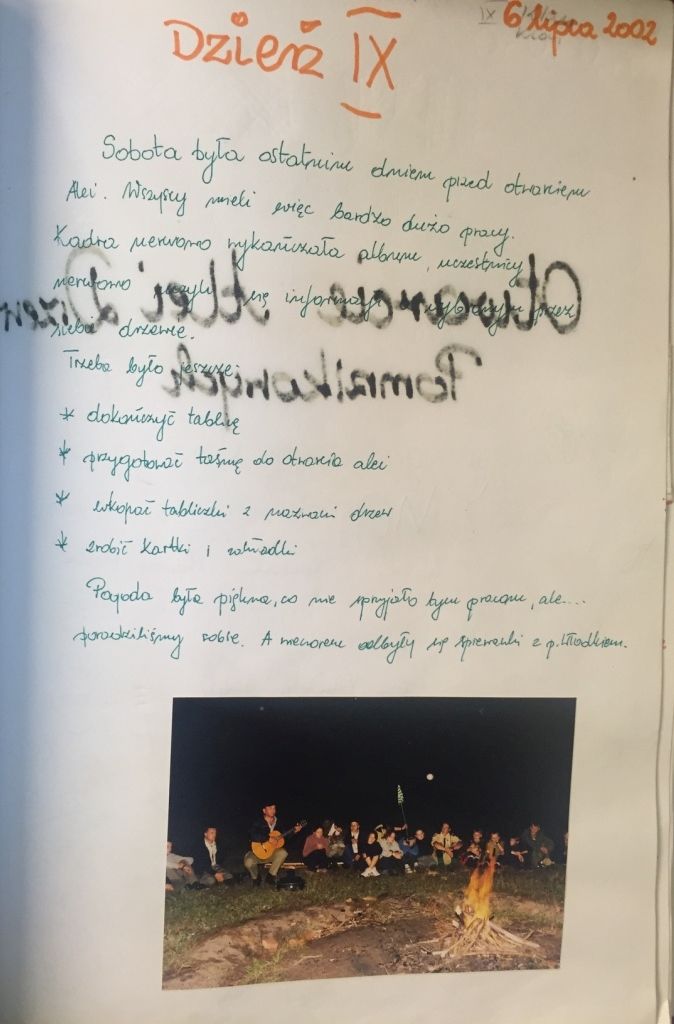 6 Lipca 2002
Dzień IX
Sobota była ostatnim dniem przed otwarciem
Alei. Wszyscy mieli więc bardzo dużo pracy.
Kadra nerwowo wykańczała album, uczestnicy
nerwowo uczyli się informacji o wybranym przez
siebie drzewie.
Trzeba było jeszcze:
* dokończyć tablicę
* przygotować taśmę do otwarcia alei
* wkopać tabliczki z nazwami drzew
* zrobić kartki i zakładki
Pogoda była piękna, co nie sprzyjało tym pracom, ale...
poradziliśmy sobie. A wieczorem odbyły się śpiewanki z p. Włodkiem.
Otwarcie Alei Drzew
Pomnikowych